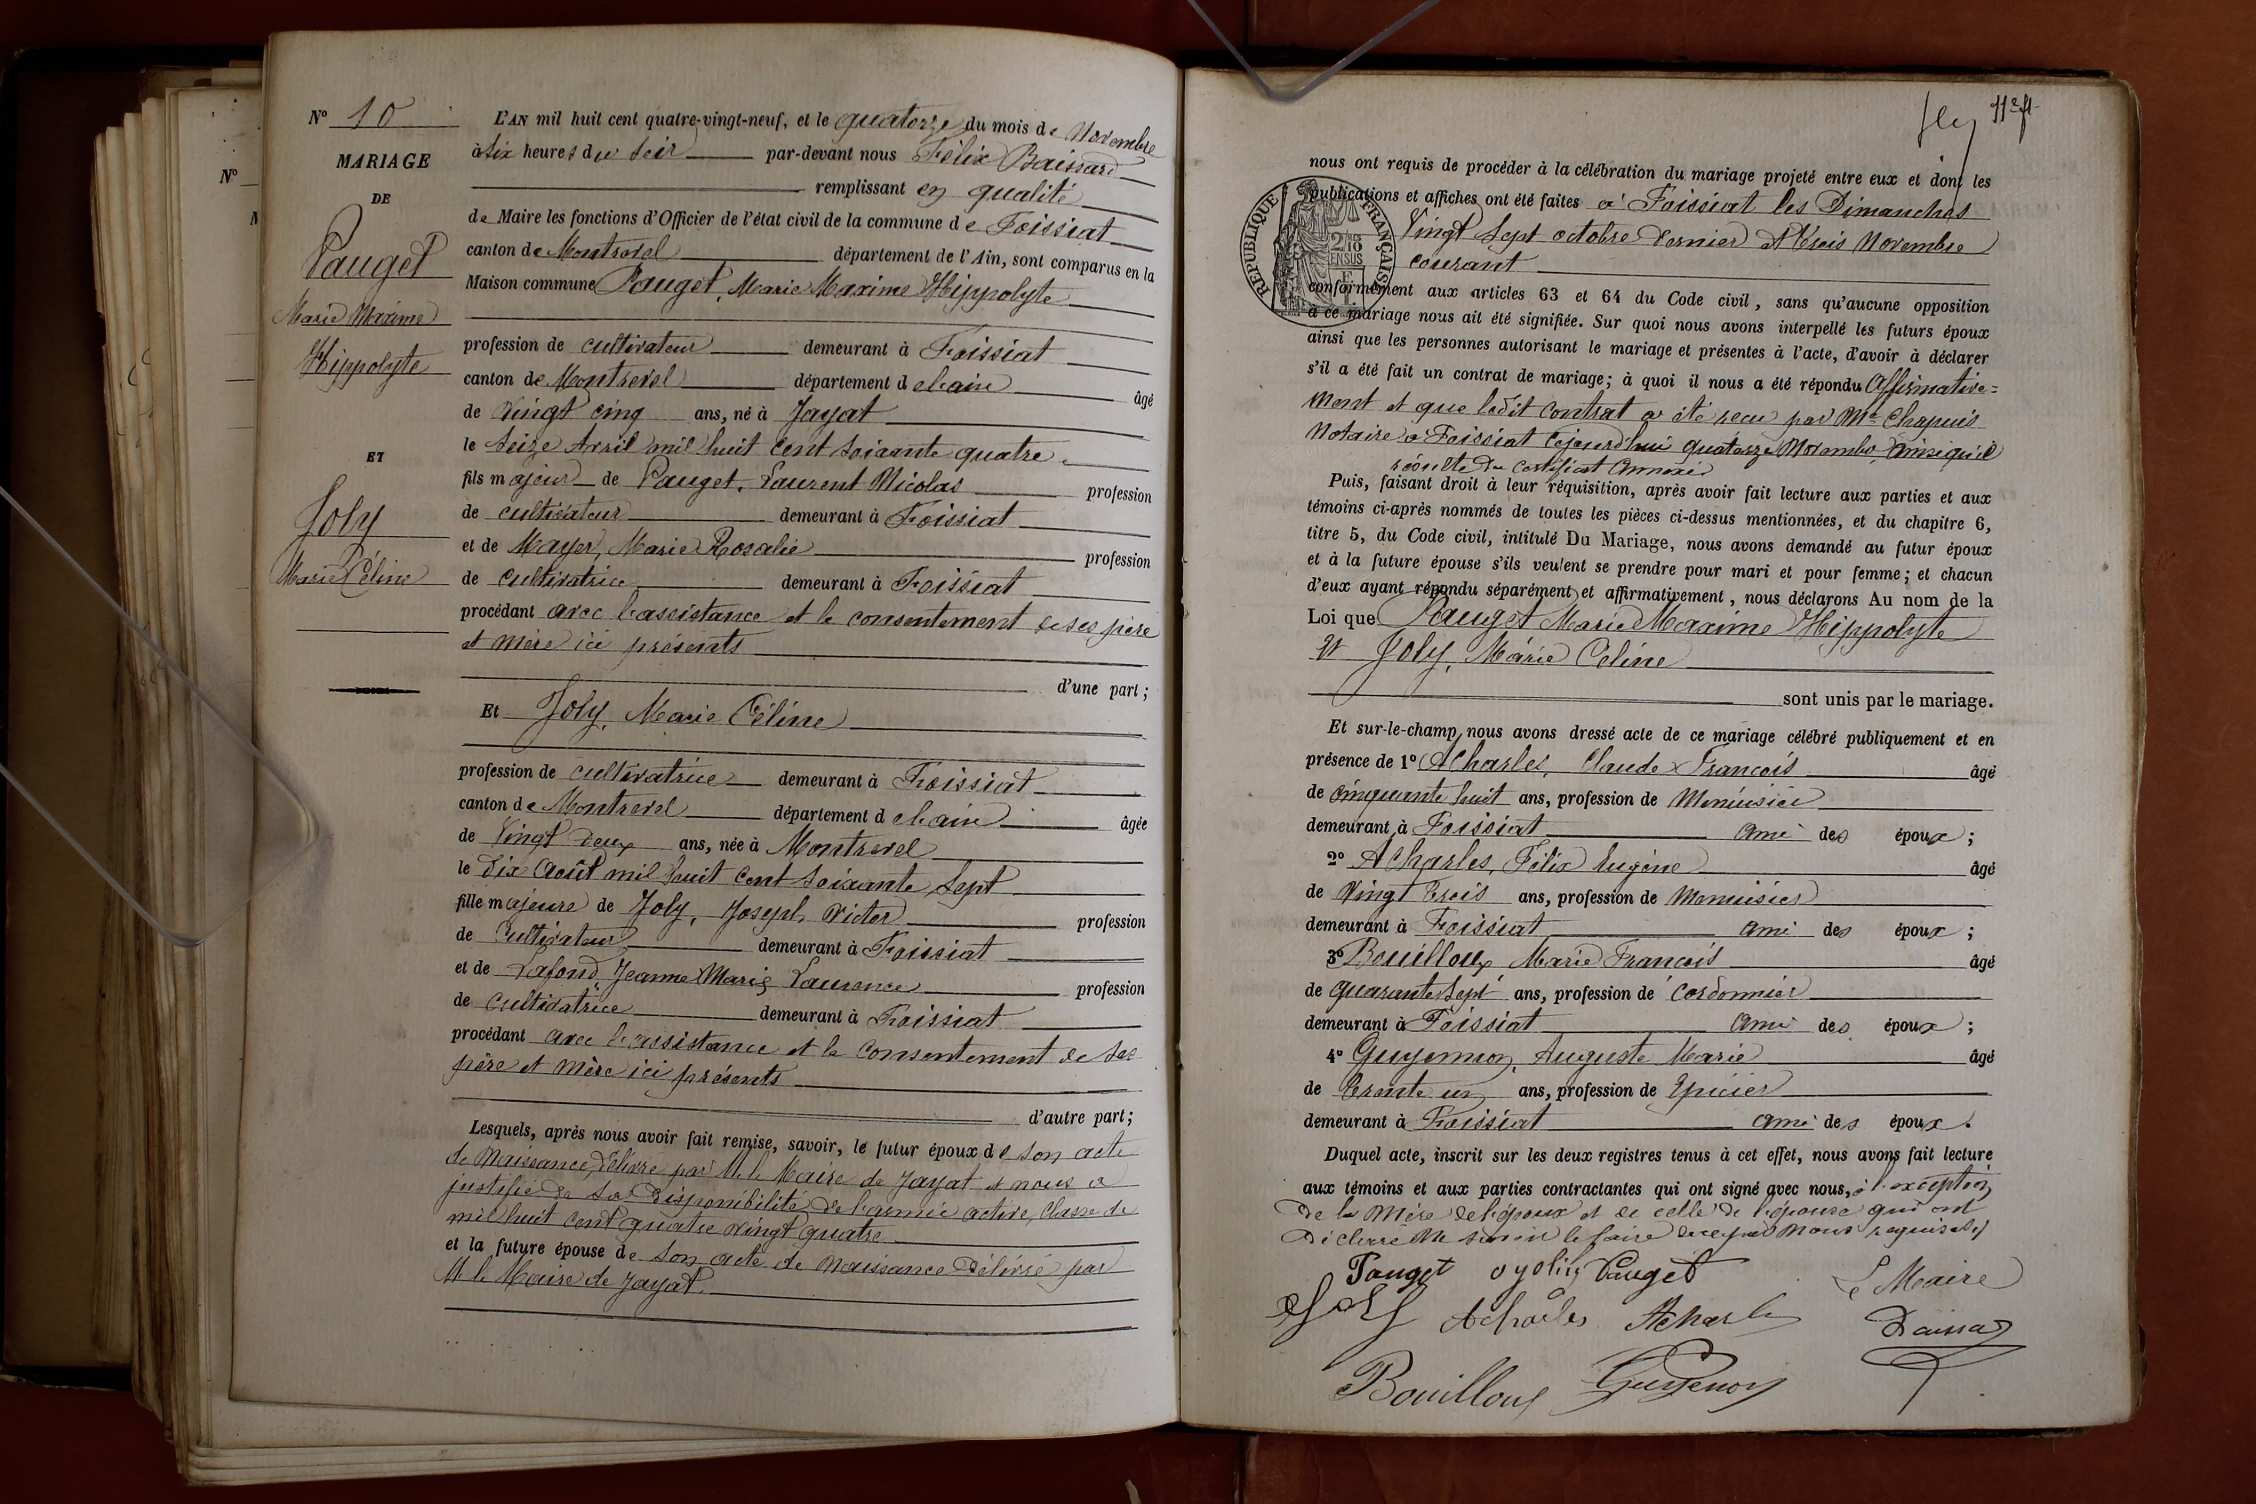 N° 10
MARIAGE
DE
Pauget
Marie Maxime
Hippolyte
ET
Joly
Marie Céline
N°
L'AN mil huit cent quatre-vingt-neuf, et le quatorze du mois de Novembre
à six heures du soir par-devant nous Félix Baissard
remplissant en qualité
de Maire les fonctions d'Officier de l'état civil de la commune de Foissiat
canton de Montrevel département de l'Ain, sont comparus en la
Maison commune Pauget, Marie Maxime Hippolyte
profession de cultivateur demeurant à Foissiat
canton de Montrevel département de l'ain âgé
de vingt cinq ans, né à Jayat
le seize Avril mil huit cent soixante quatre
fils majeur de Pauget, Laurent Nicolas profession
de cultivateur demeurant à Foissiat
et de Mayer, Marie Rosalie profession
de cultivatrice demeurant à Foissiat
procédant avec l'assistance et le consentement de ses père
et mère ici présents
d'une part;
Et Joly, Marie Céline
profession de cultivatrice demeurant à Foissiat
canton de Montrevel département de l'ain âgée
de Vingt deux ans, née à Montrevel
le dix août mil huit cent soixante sept
fille majeure de Joly, Joseph Victor profession
de Cultivateur demeurant à Foissiat
et de Lafond, Jeanne Marie Laurence profession
de cultivatrice demeurant à Foissiat
procédant avec l'assistance et le consentement de ses
père et mère ici présents
d'autre part;
Lesquels, après nous avoir fait remise, savoir, le futur époux de son acte
de Naissance, délivré par M. le Maire de Jayat et nous a
justifié de sa disponibilité de l'armée active, classe de
mil huit cent quatre vingt quatre
et la future épouse de son acte de naissance délivré par
M. le Maire de Jayat.
11e ft
nous ont requis de procéder à la célébration du mariage projeté entre eux et dont les
publications et affiches ont été faites à Foissiat les Dimanches
Vingt sept octobre dernier et trois Novembre
courant
REPUBLIQUE FRANÇAISE
conformément aux articles 63 et 64 du Code civil, sans qu'aucune opposition
à ce mariage nous ait été signifiée. Sur quoi nous avons interpellé les futurs époux
ainsi que les personnes autorisant le mariage et présentes à l'acte, d'avoir à déclarer
s'il a été fait un contrat de mariage; à quoi il nous a été répondu Affirmative=
ment et que ledit contrat a été recu par Me Chapuis
Notaire à Foissiat cejourd'hui quatorze Novembre, ainsi qu'il
résulte du certificat annexé
Puis, faisant droit à leur réquisition, après avoir fait lecture aux parties et aux
témoins ci-après nommés de toutes les pièces ci-dessus mentionnées, et du chapitre 6,
titre 5, du Code civil, intitulé Du Mariage, nous avons demandé au futur époux
et à la future épouse s'ils veulent se prendre pour mari et pour femme; et chacun
d'eux ayant répondu séparément et affirmativement, nous déclarons Au nom de la
Loi que Pauget Marie Maxime Hippolyte
et Joly, Marie Celine
sont unis par le mariage.
Et sur-le-champ, nous avons dressé acte de ce mariage célébré publiquement et en
présence de 1° Acharles, Claude François âgé
de cinquante huit ans, profession de Menuisier
demeurant à Foissiat ami des époux;
2° Acharles, Félix Eugène âgé
de Vingt trois ans, profession de Menuisier
demeurant à Foissiat ami des époux;
3° Bouilloux Marie François âgé
de quarante sept ans, profession de cordonnier
demeurant à Foissiat ami des époux;
4° Guyennon, Auguste Marie âgé
de trente un ans, profession de Epicier
demeurant à Foissiat ami des époux.
Duquel acte, inscrit sur les deux registres tenus à cet effet, nous avons fait lecture
aux témoins et aux parties contractantes qui ont signé avec nous, à l'exception
de la Mère de l'époux et de celle de l'épouse qui ont
déclaré ne savoir le faire de ce par nous requises
Pauget Pauget Le Maire
Joly Acharles Acharles Baissard
Bouilloux Guyennon